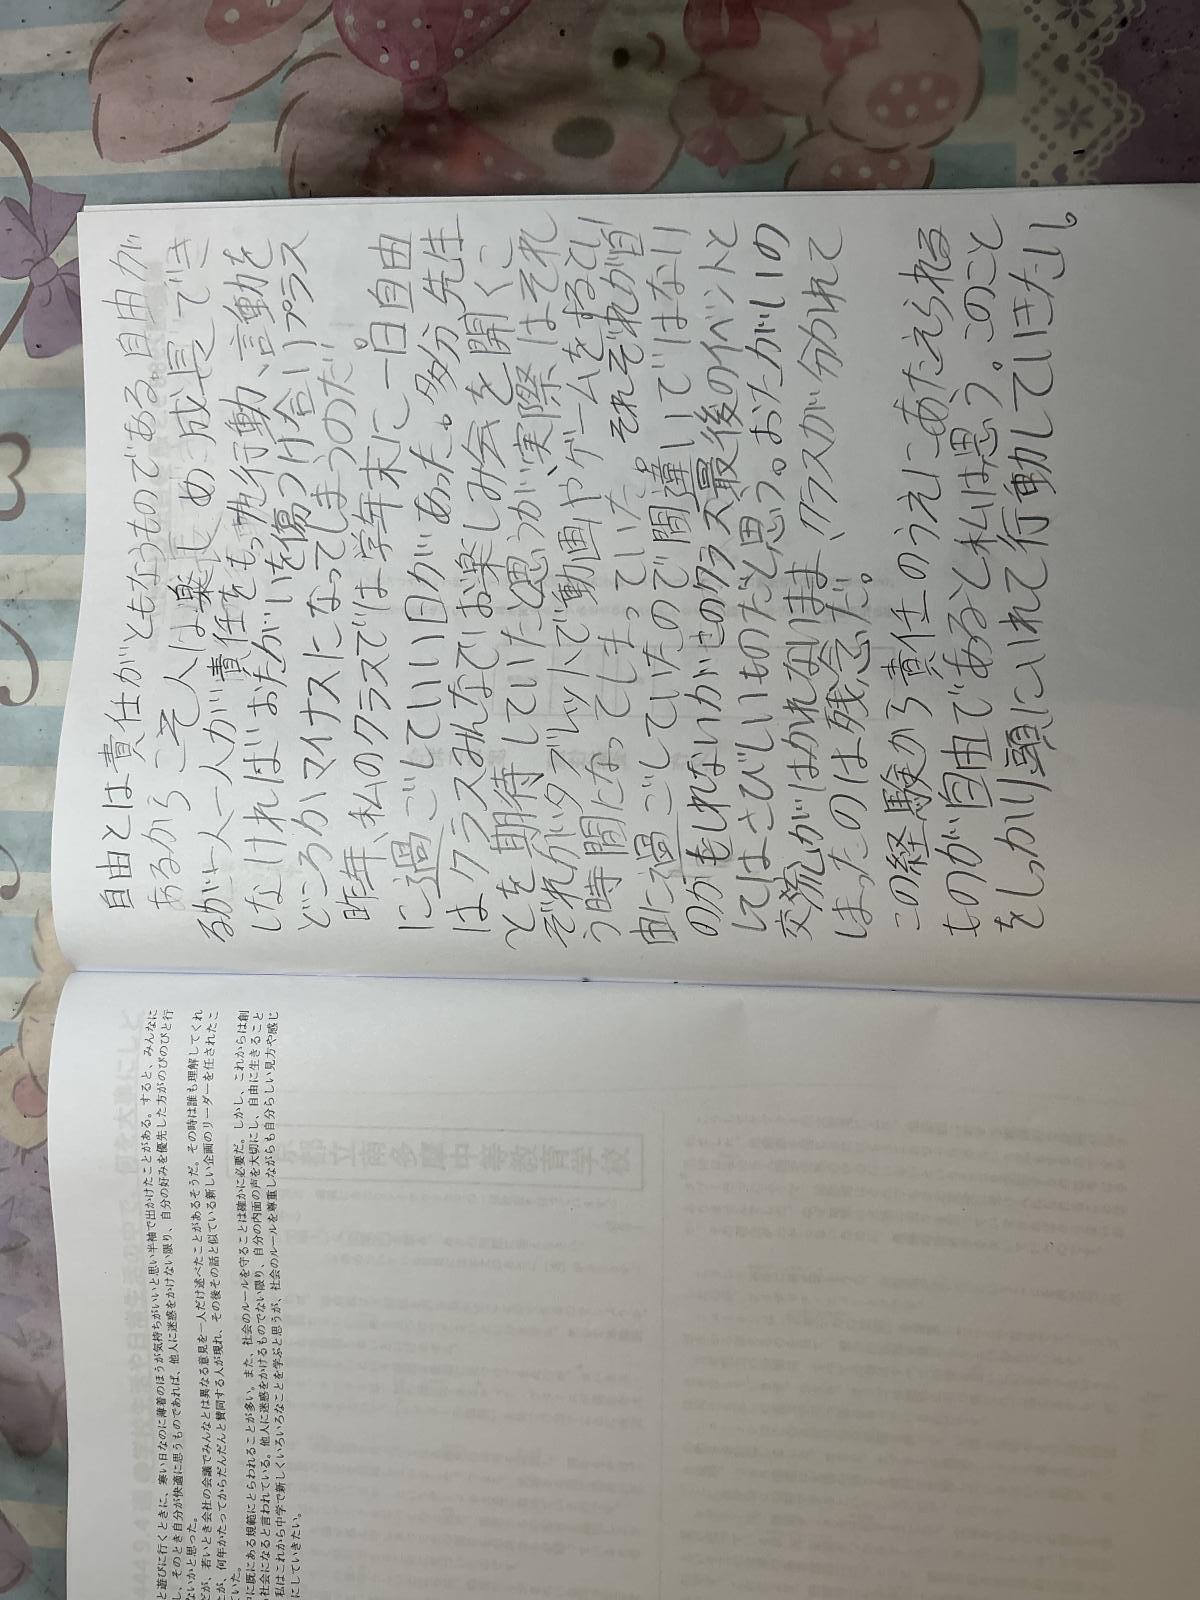 自由とは責任がともなうものである。自由が
あるからこそ人は楽しめ成長でき
るが、人一人が責任をもった行動、言動を
しなければおたがいを傷つけ合いプラス
どころかマイナスになってしまうのだ。
昨年、私のクラスでは学年末に一日自由
に過ごしていい日があった。多分先生
はクラスみんなでお楽しみ会を開くこ
とを期待していたと思うが、実際はそれ
ぞれがタブレットで動画やゲームをするとい
う時間になってしまっていた。それぞれが自
由に過ごしていたので間違いではない
のかもしれないがこのクラス最後のイベントと
してはさびしいものだと思う。おたがいの
交流がはかれないまま、クラスが分かれて
しまったのは残念だ。
この経験から責任のうえにあたえられる
ものが自由であると私は思う。このこと
をしっかり頭にいれて行動していきたい。
と遊びに行くときに、寒い日なのに薄着のほうが気持ちがいいと思い半袖で出かけたことがある。すると、みんなに
し、そのとき自分が快適に思うものであれば、他人に迷惑をかけない限り、自分の好みを優先した方がのびのびと行
ないかと思った。
だが、若いとき会社の会議でみんなとは異なる意見を一人だけ述べたことがあるそうだ。その時は誰も理解してくれ
が、何年かたってからだんだんと賛同する人が現れ、その後その話と似ている新しい企画のリーダーを任されたこ
いた。
に既にある規範にとらわれることが多い。また、社会のルールを守ることは確かに必要だ。しかし、これからは創
社会になると言われている。他人に迷惑をかけるものでない限り、自分の内面の声を大切にし、自由に生きること
私はこれから中学で新しくいろいろなことを学ぶと思うが、社会のルールを尊重しながらも自分らしい見方や感じ
にしていきたい。